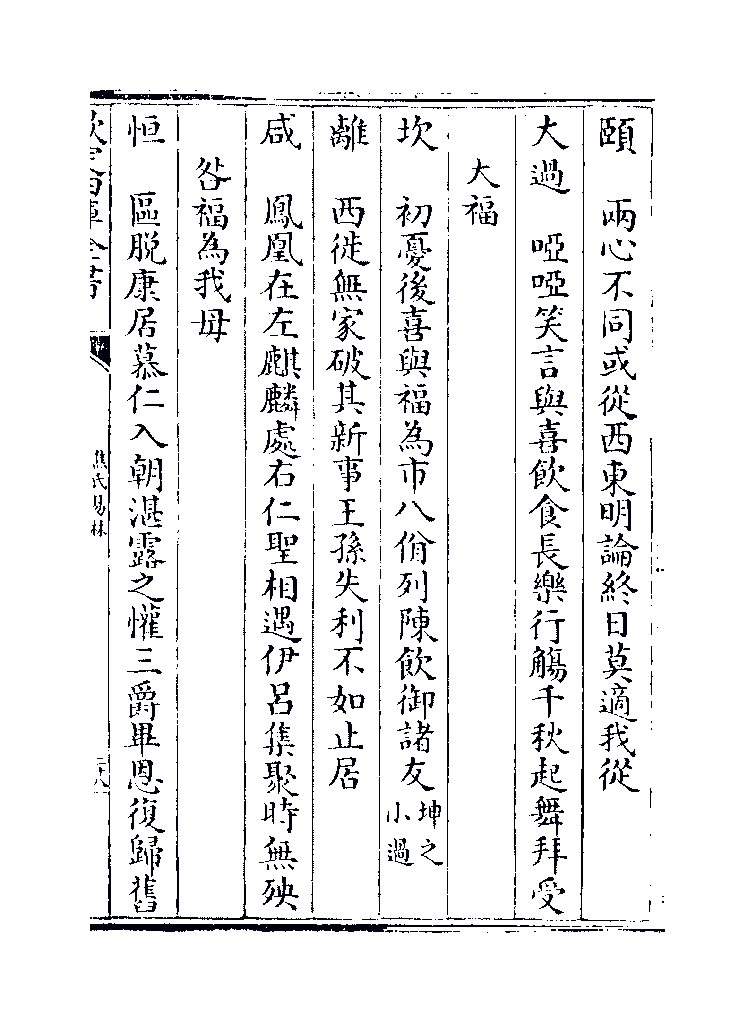 頤　兩心不同或從西東明論終日莫適我從
大過　啞啞笑言與喜飲食長樂行觴千秋起舞拜受
大福
坎　初憂後喜與福為市八佾列陳飲御諸友坤之小過
離　西徙無家破其新事王孫失利不如止居
咸　鳳凰在左麒麟處右仁聖相遇伊呂集聚時無殃
咎福為我母
恒　區脱康居慕仁入朝湛露之懽三爵畢恩復歸舊
欽定四庫全書
焦氏易林